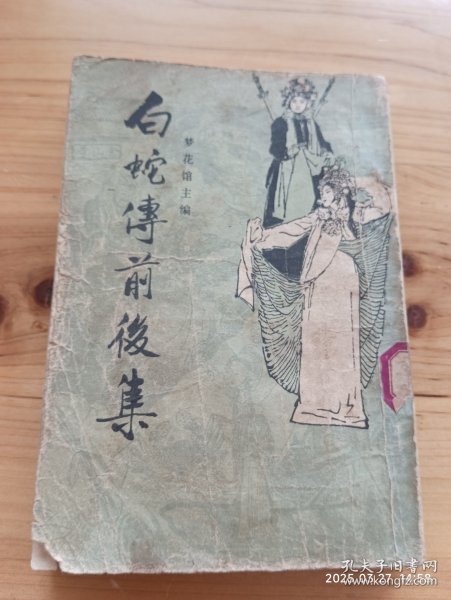 白蛇傳前後集
梦花馆主编
孔夫子旧书网
www.kongfz.com
2025.07.27 14:58